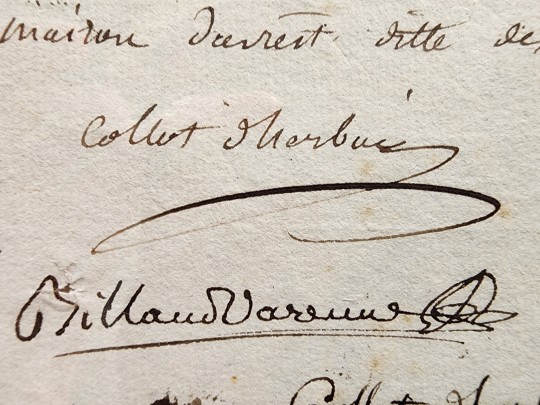 maison d'arrest ditte des
Collot d'herbois
Billaud Varenne
Collot d'he